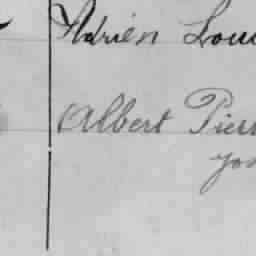 Adrien Lou
Albert Pier